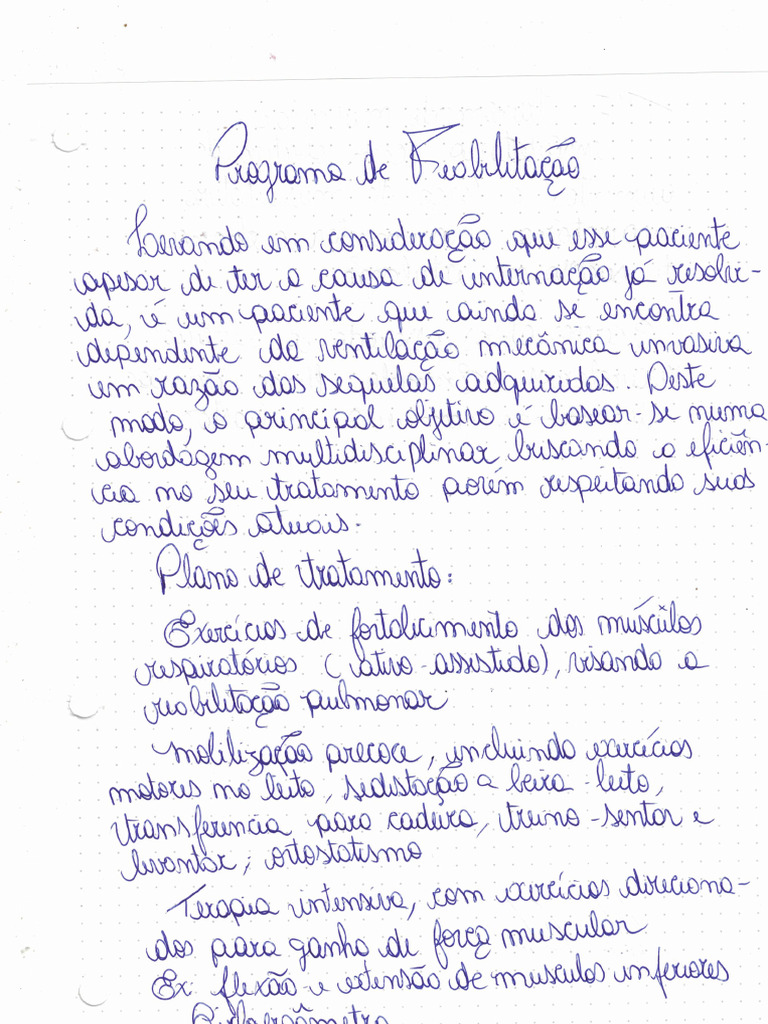 Programa de Reabilitação
Levando em consideração que esse paciente
apesar de ter a causa de internação já resolvi-
da, é um paciente que ainda se encontra
dependente da ventilação mecânica invasiva
em razão das sequelas adquiridas. Deste
modo, o principal objetivo é basear-se numa
abordagem multidisciplinar buscando a eficiên-
cia no seu tratamento porém respeitando suas
condições atuais.
Plano de tratamento:
Exercícios de fortalicimento dos músculos
respiratórios (ativo-assistido), visando a
reabilitação pulmonar
mobilização precoce, incluindo exercícios
motores no leito, sedistação a beira-leito,
transferencia para cadeira, treino-sentar e
levantar, ortostatismo
Terapia intensiva, com exercícios direciona-
dos para ganho de força muscular
Ex: flexão e extensão de musculos inferiores
Cicloergômetro